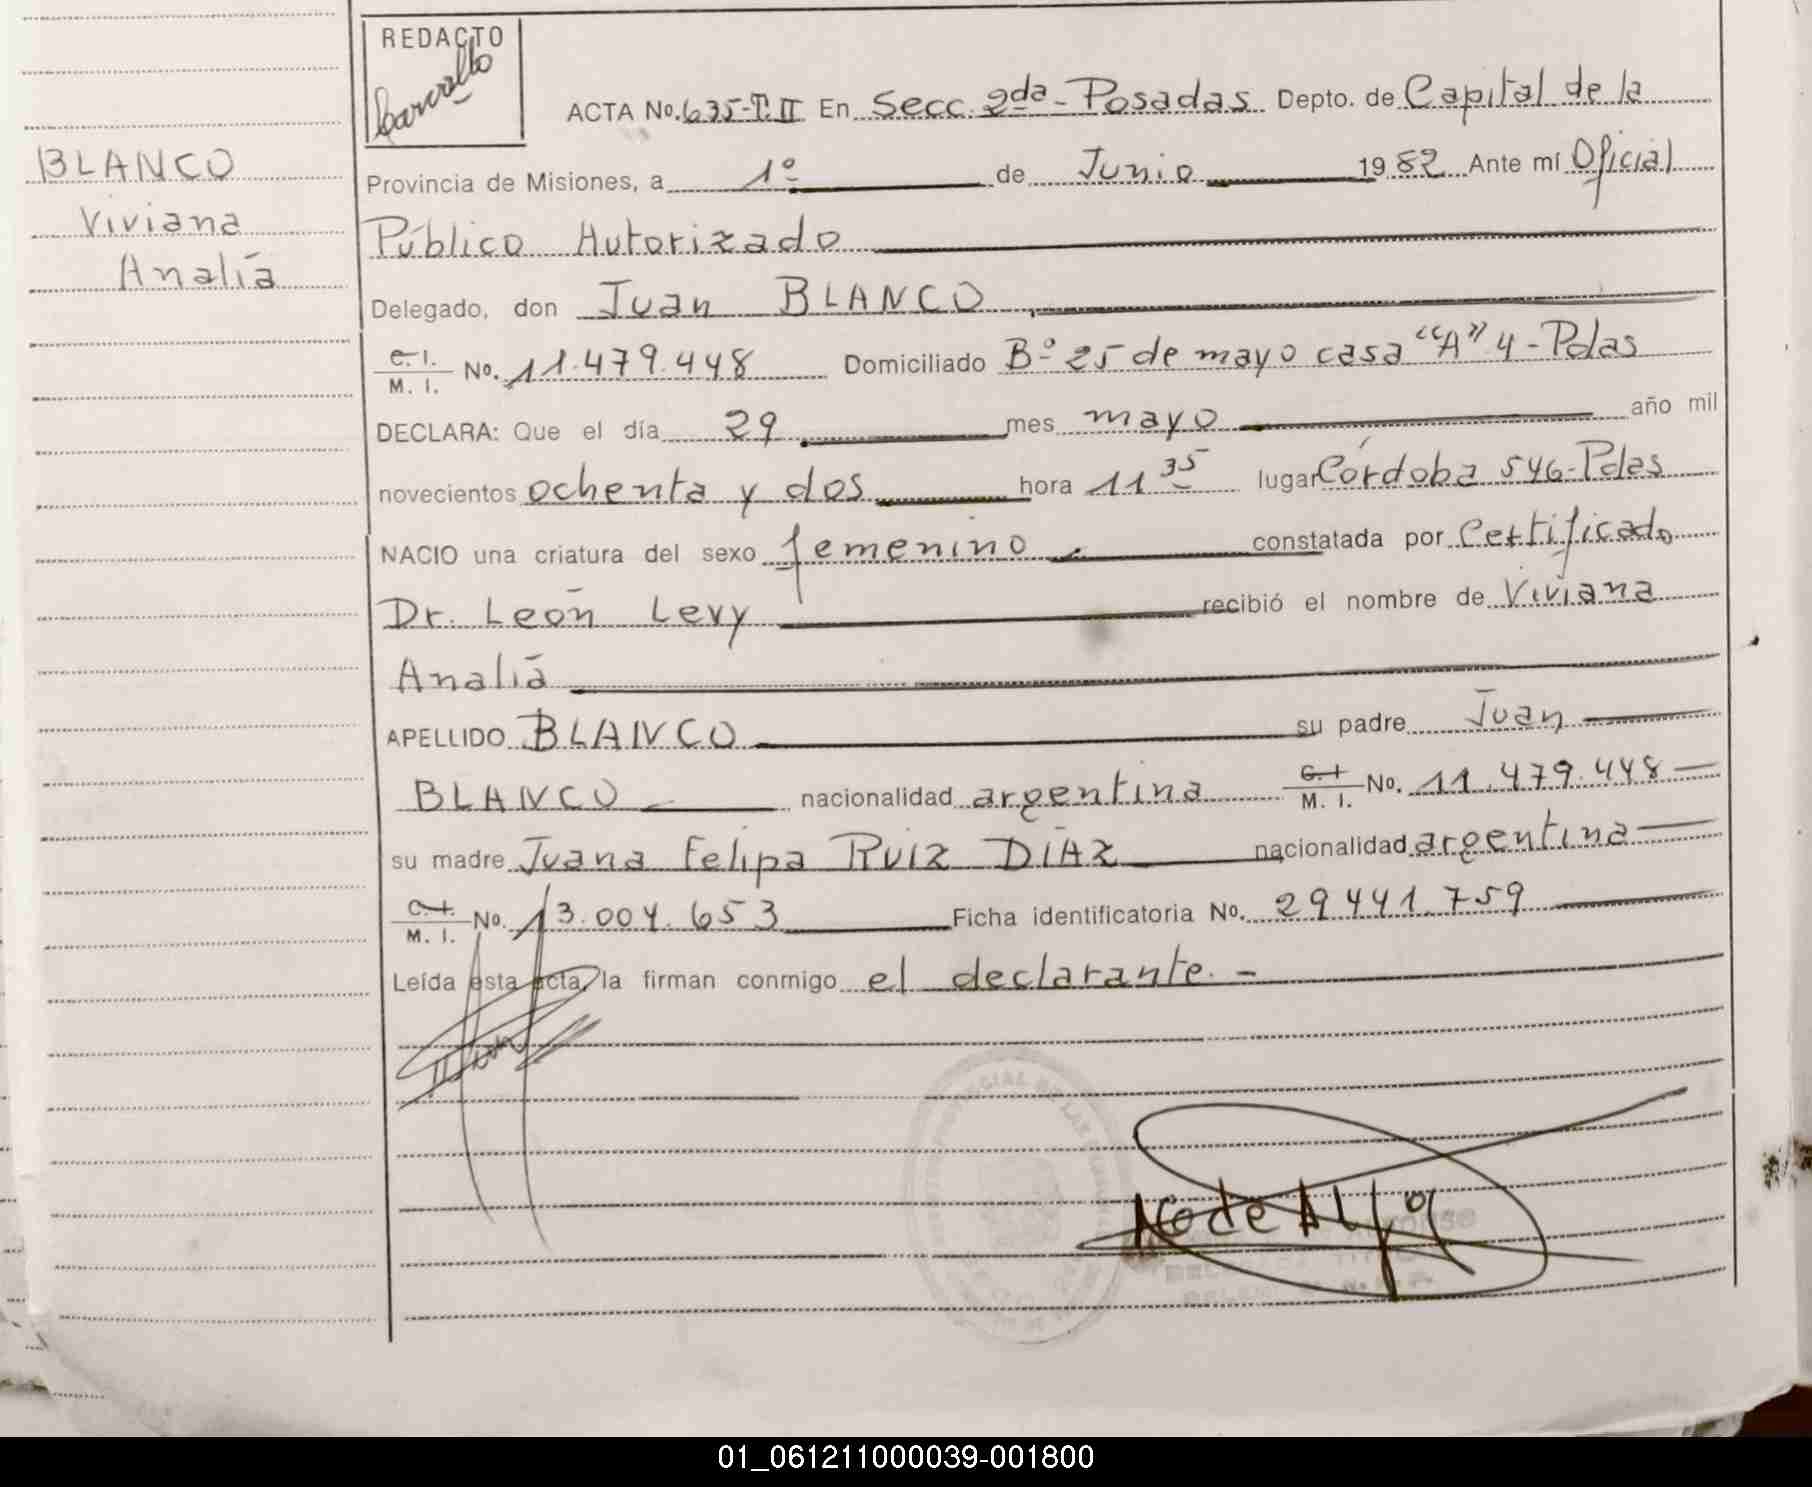 REDACTO
ACTA No. 635-T.II En Secc. 2da - Posadas Depto. de Capital de la
BLANCO
Viviana
Analía
Provincia de Misiones, a 1º de Junio 1982 Ante mí Oficial
Público Autorizado
Delegado, don Juan BLANCO
C. I.
M. I. No. 11.479.448 Domiciliado Bº 25 de mayo casa "A" 4 - Pdas
DECLARA: Que el día 29 mes mayo año mil
novecientos ochenta y dos hora 11 35 lugar Córdoba 546-Pdas
NACIO una criatura del sexo femenino constatada por Certificado
Dr. León Levy recibió el nombre de Viviana
Analía
APELLIDO BLANCO su padre Juan
BLANCO nacionalidad argentina C. I.
M. I. No. 11.479.448
su madre Juana Felipa RUIZ DIAZ nacionalidad argentina
C. I.
M. I. No. 13.004.653 Ficha identificatoria No. 29441.759
Leída esta acta, la firman conmigo el declarante. -
01_061211000039-001800